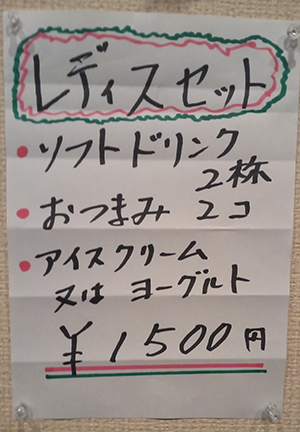 レディスセット
• ソフトドリンク
2杯
• おつまみ 2コ
• アイスクリーム
又は ヨーグルト
¥1500円